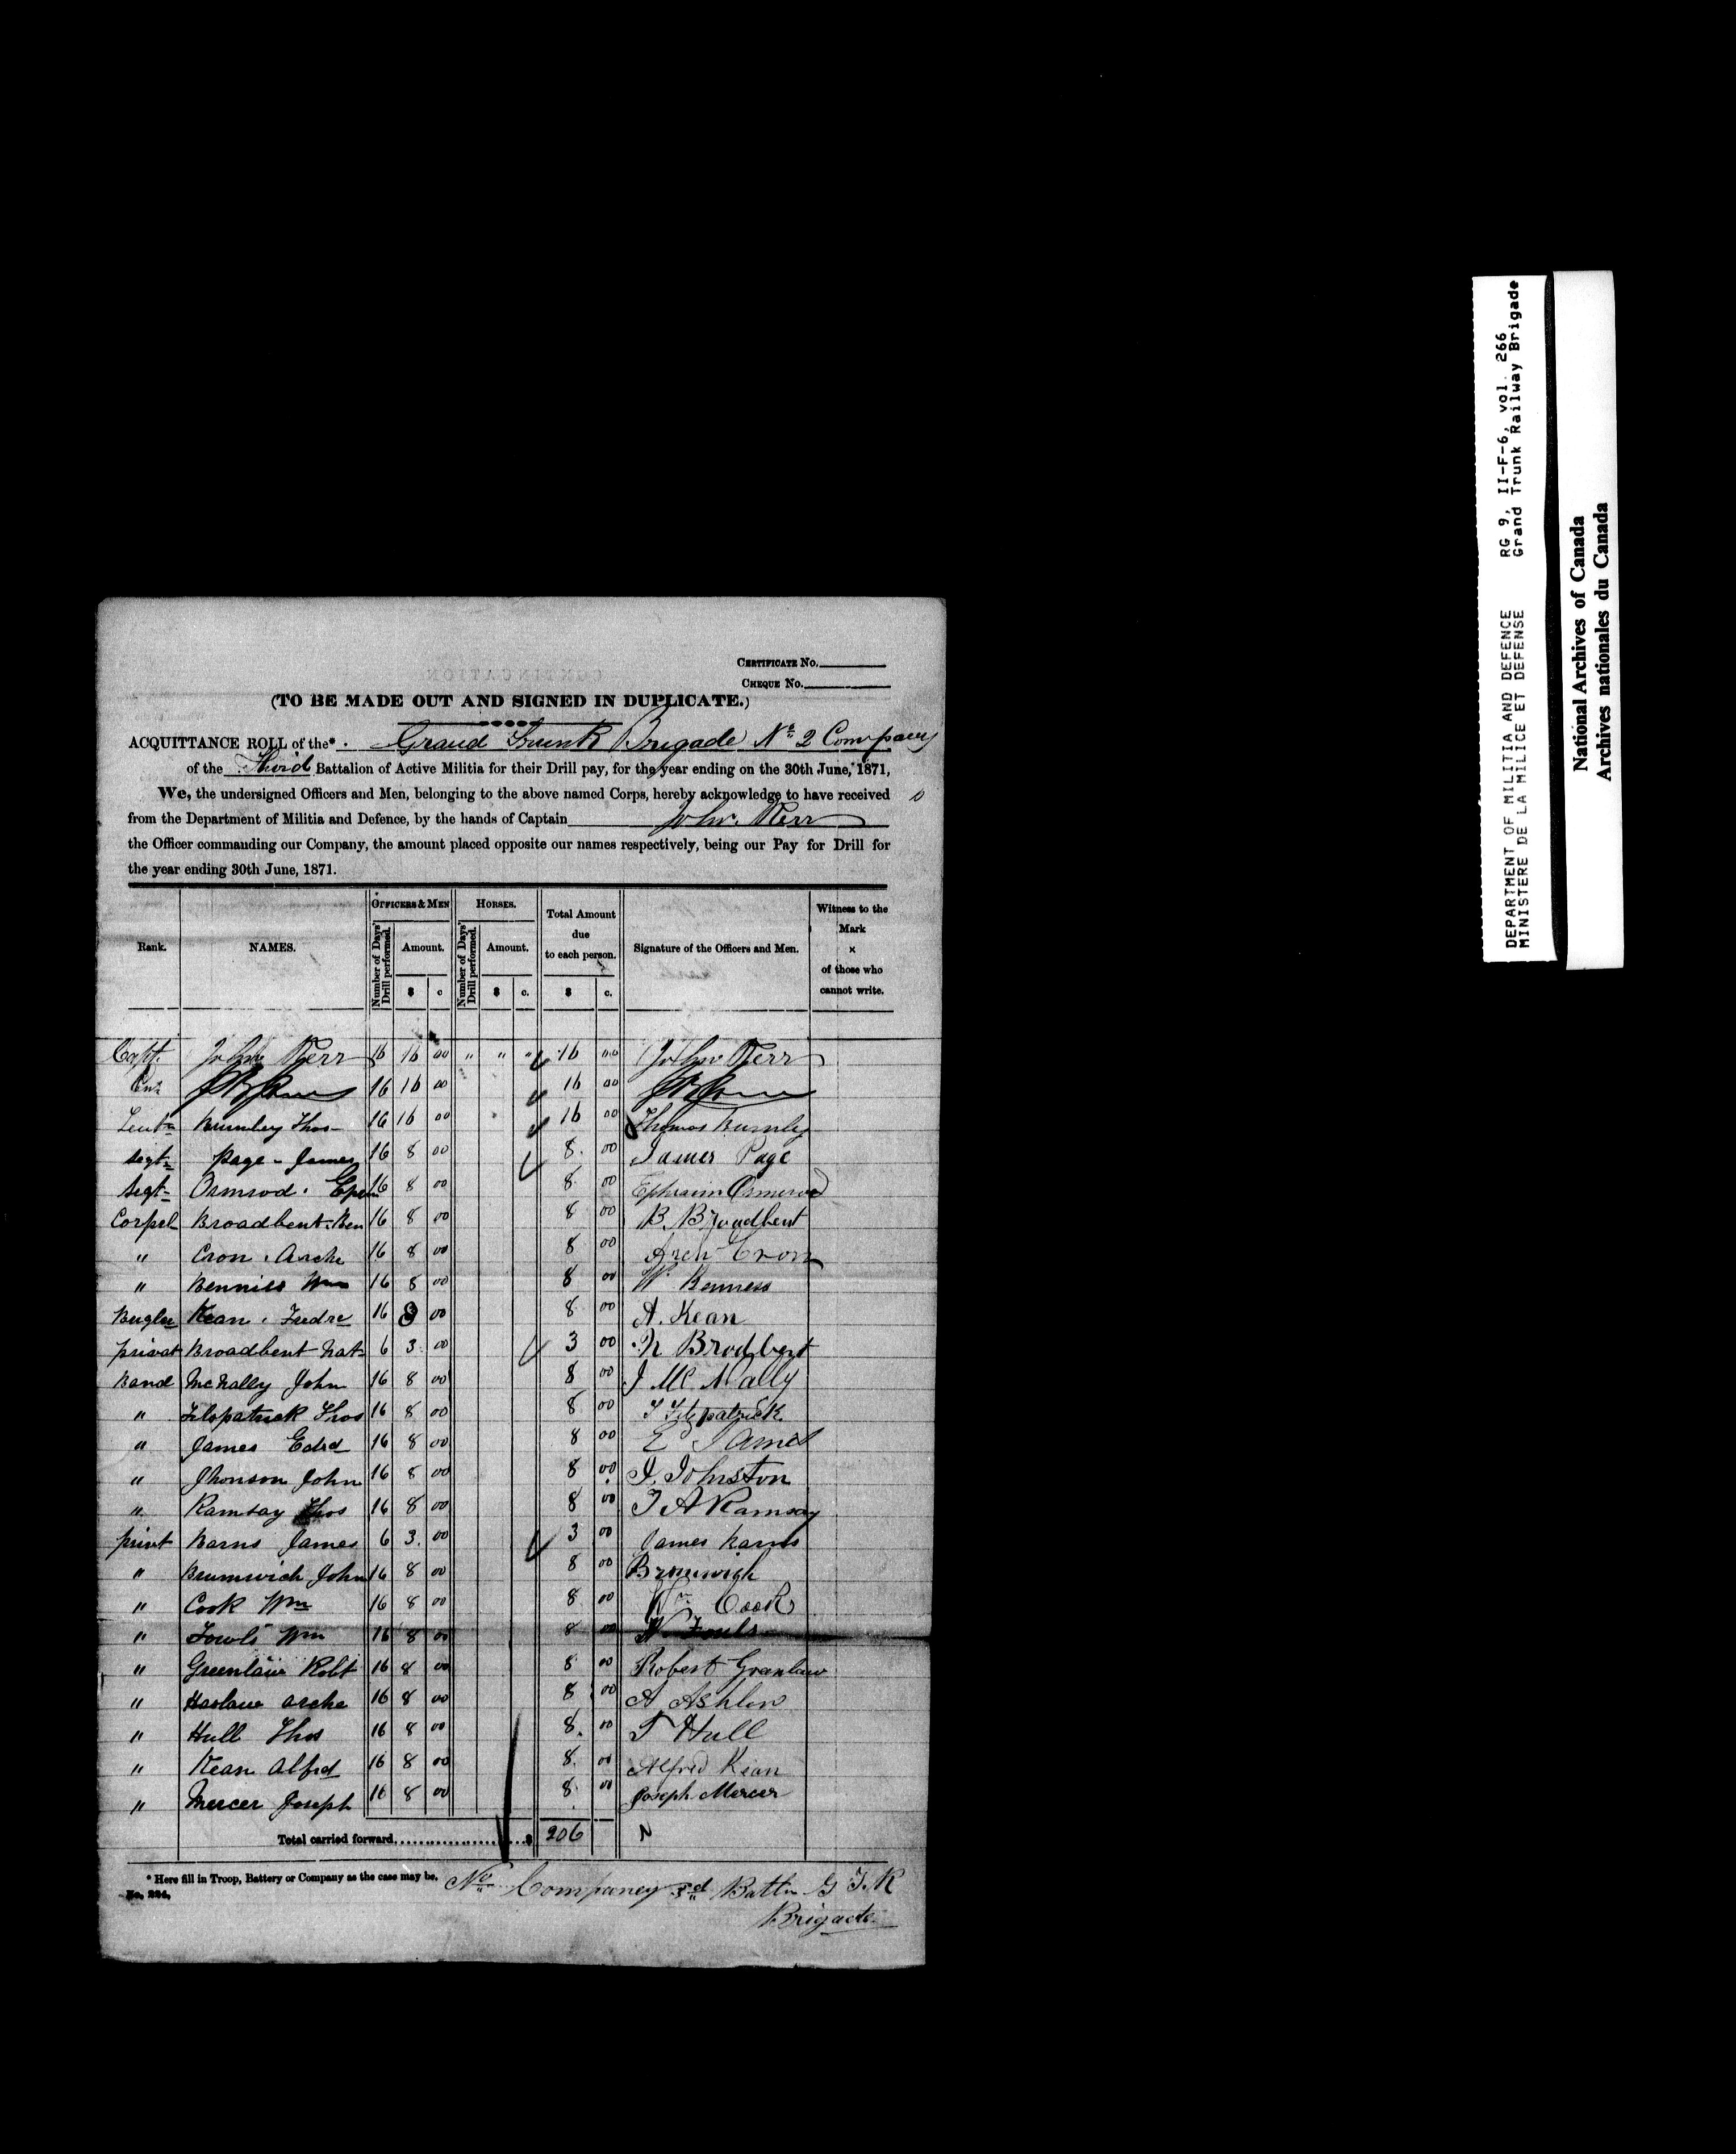 CERTIFICATE No.
CHEQUE No.
(TO BE MADE OUT AND SIGNED IN DUPLICATE.)
ACQUITTANCE ROLL of the* Grand Trunk Brigade No 2 Company
of the Third Battalion of Active Militia for their Drill pay, for the year ending on the 30th June, 1871,
We, the undersigned Officers and Men, belonging to the above named Corps, hereby acknowledge to have received
from the Department of Militia and Defence, by the hands of Captain John Kerr
the Officer commanding our Company, the amount placed opposite our names respectively, being our Pay for Drill for
the year ending 30th June, 1871.
Rank. NAMES. OFFICERS & MEN Number of Days' Drill performed. Amount. $ c HORSES. Number of Days' Drill performed. Amount. $ c. Total Amount due to each person. $ c. Signature of the Officers and Men. Witness to the Mark × of those who cannot write.
Capt. John Kerr 16 16 00 " " " 16 00 John Kerr
16 16 00 16 00
Leut Burnley Thos 16 16 00 16 00 Thomas Burnley
Segt Page - James 16 8 00 8 00 James Page
Segt Ormrod 16 8 00 8 00 Ephraim Ormerod
Corpel Broadbent Ben 16 8 00 8 00 B. Broadbent
" Cron Arche 16 8 00 8 00 Arch Cron
" Benniss Wm 16 8 00 8 00 W. Benness
Bugler Kean Fredre 16 8 00 8 00 A. Kean
privat Broadbent Nat 6 3 00 3 00 N Brodbent
Band McNally John 16 8 00 8 00 J McNally
" Fitspatrick Thos 16 8 00 8 00 T Fitzpatrick
" James Edrd 16 8 00 8 00 E James
" Jhonson John 16 8 00 8 00 J. Johnston
" Ramsay Thos 16 8 00 8 00 T A Ramsay
privt Barns James 6 3 00 3 00 James Barns
" Brumwich John 16 8 00 8 00 Brumwich
" Cook Wm 16 8 00 8 00 Wm Cook
" Fowls Wm 16 8 00 8 00 W. Fouls
" Greenlaw Robt 16 8 00 8 00 Robert Greenlaw
" Haslaw Arche 16 8 00 8 00 A Ashlow
" Hull Thos 16 8 00 8 00 T Hull
" Kean Alfrd 16 8 00 8 00 Alfred Kean
" Mercer Joseph 16 8 00 8 00 Joseph Mercer
Total carried forward $ 206
* Here fill in Troop, Battery or Company as the case may be. No Company 3rd Battn G T. R
No. 224.
Brigade
DEPARTMENT OF MILITIA AND DEFENCE RG 9, II-F-6, vol. 266
MINISTERE DE LA MILICE ET DEFENSE Grand Trunk Railway Brigade
National Archives of Canada
Archives nationales du Canada